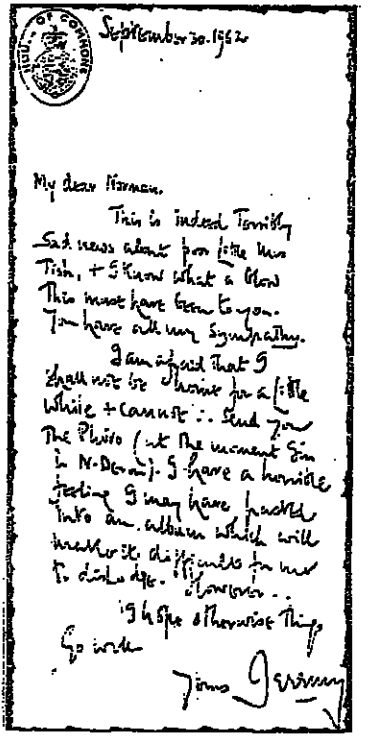 HOUSE OF COMMONS
September 30. 1962
My dear Norman.
This is indeed Terribly
Sad news about poor little Mrs
Tish, + I know what a blow
This must have been to you.
You have all my Sympathy.
I am afraid that I
shall not be home for a little
while + cannot ∴ send you
The Photo (at the moment I'm
in N. Devon). I have a horrible
feeling I may have
into an album which will
make it difficult for me
to dislodge. However..
I hope otherwise Things
Go well.
Yours Jeremy